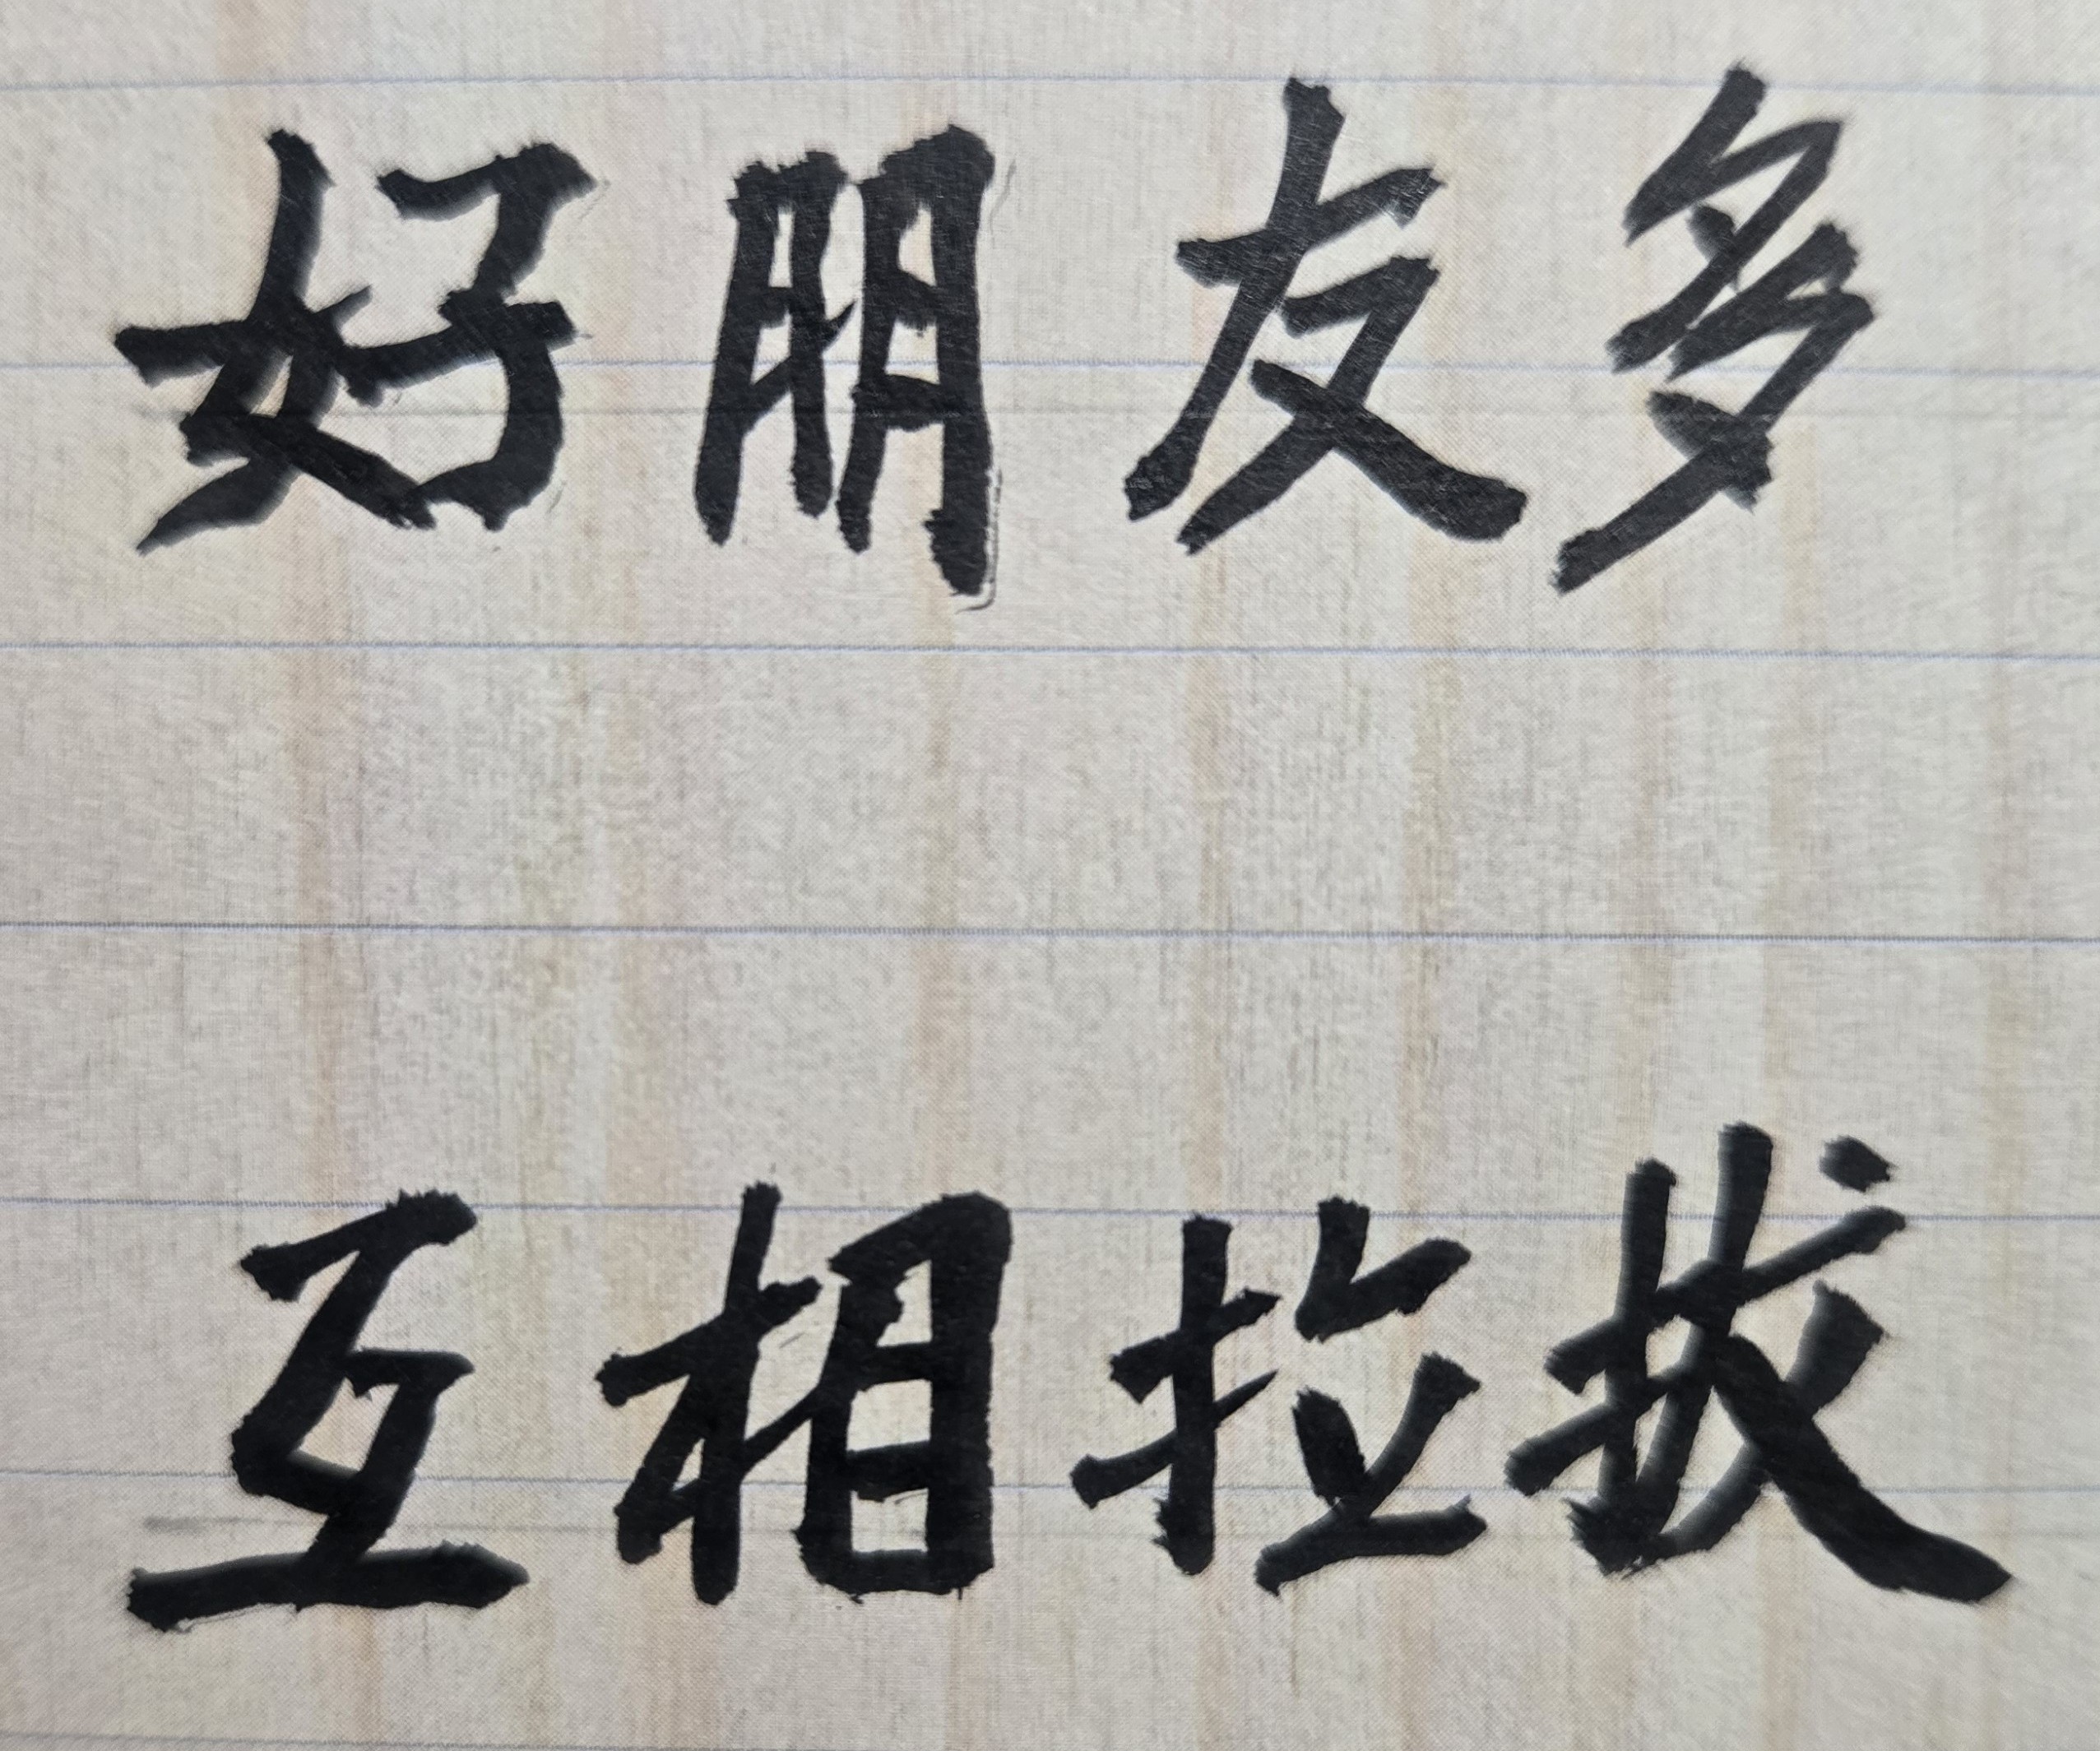 好朋友多
互相拉拔